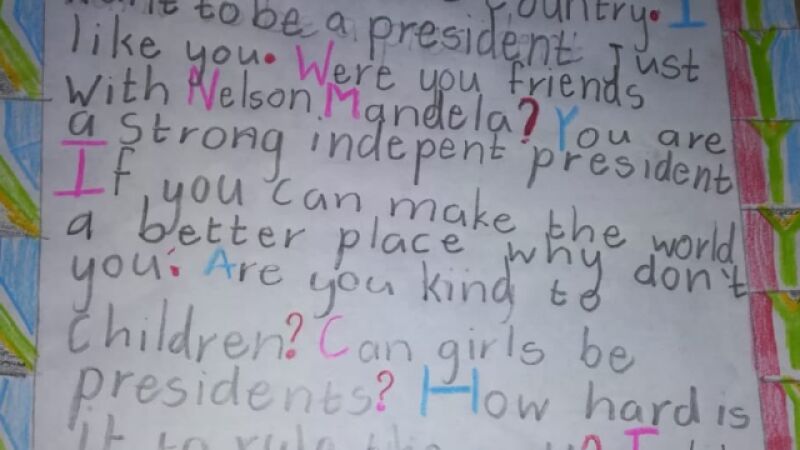 it to be a president Just
like you. Were you friends
with Nelson Mandela? You are
a strong indepent president
If you can make the world
a better place why don't
you. Are you kind to
children? Can girls be
presidents? How hard is
it to rule